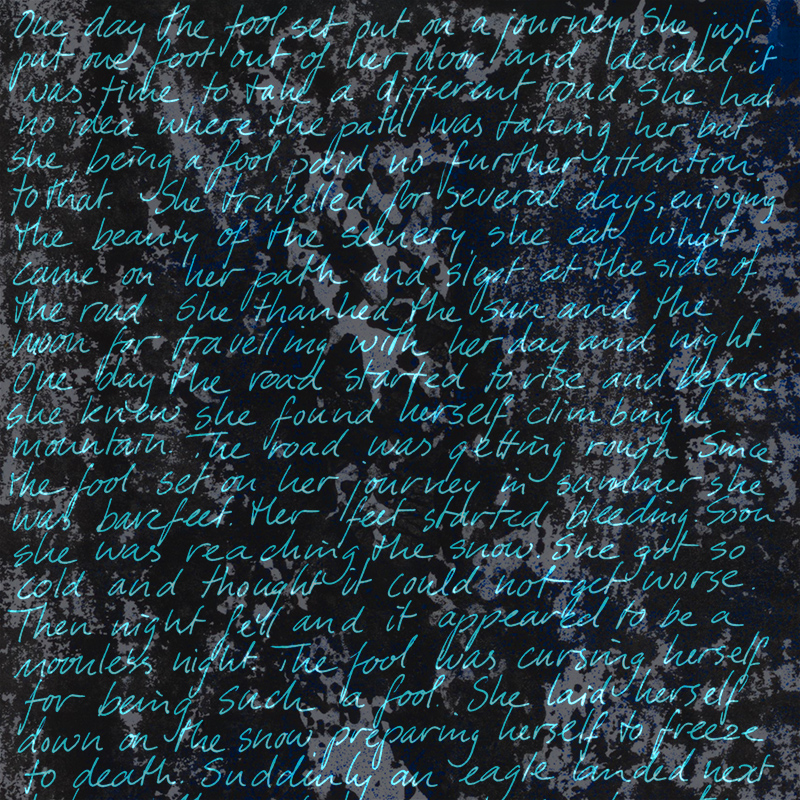 One day the fool set out on a journey. She just
put one foot out of her door and decided it
was time to take a different road. She had
no idea where the path was taking her but
she, being a fool, paid no further attention
to that. She travelled for several days, enjoying
the beauty of the scenery, she eat what
came on her path and slept at the side of
the road. She thanked the sun and the
moon for travelling with her day and night.
One day the road started to rise and before
she knew she found herself climbing a
mountain. The road was getting rough. Since
the fool set on her journey in summer she
was barefeet. Her feet started bleeding. Soon
she was reaching the snow. She got so
cold and thought it could not get worse.
Then night fell and it appeared to be a
moonless night. The fool was cursing herself
for being such a fool. She laid herself
down on the snow preparing herself to freeze
to death. Suddenly an eagle landed next